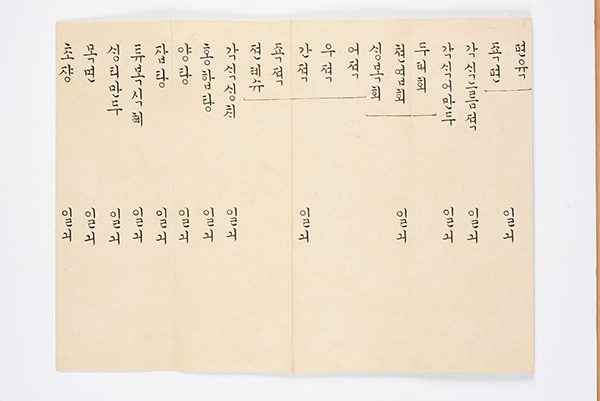 편육
죡편 일긔
각식느름젹 일긔
각식어만두 일긔
두태회
쳔엽회 일긔
싱복회
어젹
우젹
간젹 일긔
죡젹
젼톄슈
각식싱치 일긔
홍합탕 일긔
양탕 일긔
잡탕 일긔
튜복식혜 일긔
싱티만두 일긔
목면 일긔
초쟝 일긔